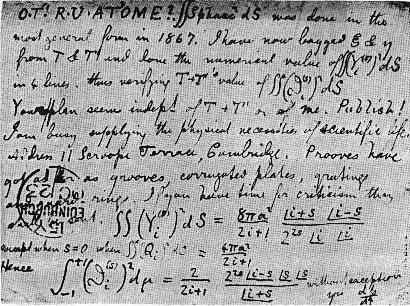 O.T'. R.U. AT OME? ∬ Spharc² dS was done in the
most general form in 1867. I have now bagged ξ & η
from T & T' and done the numerical value of ∬(Y_i^(s))² dS
in 4 lines. thus verifying T+T'ˢ value of ∬(ϑ_i^(s))² dS
Your plan seems indept. of T + T' or of me. Publish!
I am busy supplying the physical necessities of scientific life
address 11 Scroope Terrace, Cambridge. Prooves have
got as far as grooves, corrugated plates, grating
rings. If you have time for criticism then
∬(Y_i^(s))² dS = 8πa²/(2i+1) |i+s |i-s / 2^2s |i |i
except when s=0 when ∬(Q_i)² dS = 4πa²/(2i+1)
Hence ∫_-1^+1 (ϑ_i^(s))² dμ = 2/(2i+1) 2^2s |i-s |s |s / |i+s without exception
EDINBURGH